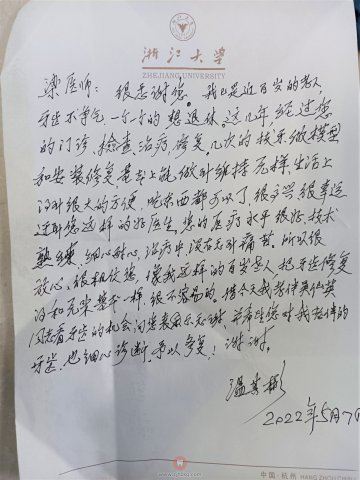 浙江大学
ZHEJIANG UNIVERSITY
梁医师：很感谢您。我已是近百岁的老人，
牙齿不争气一个一个的想退休，这几年经过您
的门诊、检查治疗，修复，几次的拔牙做模型
和安装修复基本上就做到维持原样，生活上
得到很大的方便，吃东西都可以了，很高兴很幸运
遇到您这样的好医生。您的医疗水平很好，技术
熟练，细心耐心，治疗中没有无到痛苦。所以很
放心，很相信您，像我这样的百岁老人，把牙齿修复
得和原来基本一样，很不容易的。借今天我老伴
同志看牙齿的机会向您表示感谢，并希望您对我老伴的
牙齿，也细心诊断，予以修复！谢谢。
2022年5月7日
中国·杭州 HANGZHOU CHINA